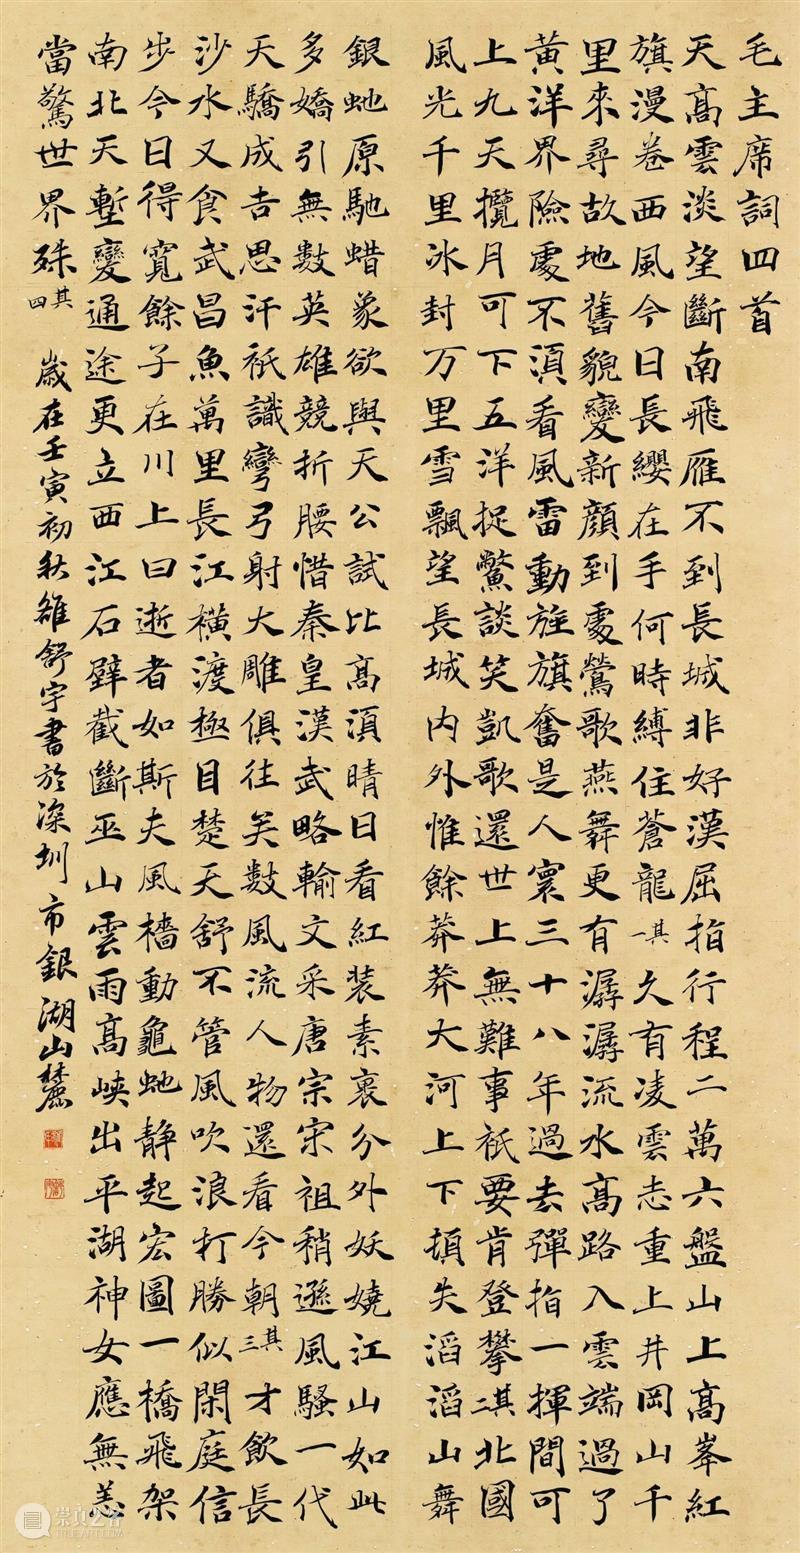 毛主席詞四首
天高雲淡望斷南飛雁不到長城非好漢屈指行程二萬六盤山上高峯紅
旗漫卷西風今日長纓在手何時縛住蒼龍其一久有凌雲志重上井岡山千
里來尋故地舊貌變新顏到處鶯歌燕舞更有潺潺流水高路入雲端過了
黃洋界險處不須看風雷動旌旗奮是人寰三十八年過去彈指一揮間可
上九天攬月可下五洋捉鱉談笑凱歌還世上無難事祇要肯登攀其二北國
風光千里冰封万里雪飄望長城內外惟餘莽莽大河上下頓失滔滔山舞
銀虵原馳蜡象欲與天公試比高須晴日看紅裝素裹分外妖嬈江山如此
多嬌引無數英雄競折腰惜秦皇漢武略輸文采唐宗宋祖稍遜風騷一代
天驕成吉思汗祇識彎弓射大雕俱往矣數風流人物還看今朝其三才飲長
沙水又食武昌魚萬里長江橫渡極目楚天舒不管風吹浪打勝似閑庭信
步今日得寬餘子在川上曰逝者如斯夫風檣動龜虵静起宏圖一橋飛架
南北天塹變通途更立西江石壁截斷巫山雲雨高峽出平湖神女應無恙
當驚世界殊其四 歲在壬寅初秋雒舒宇書於深圳市銀湖山麓
崇真艺客